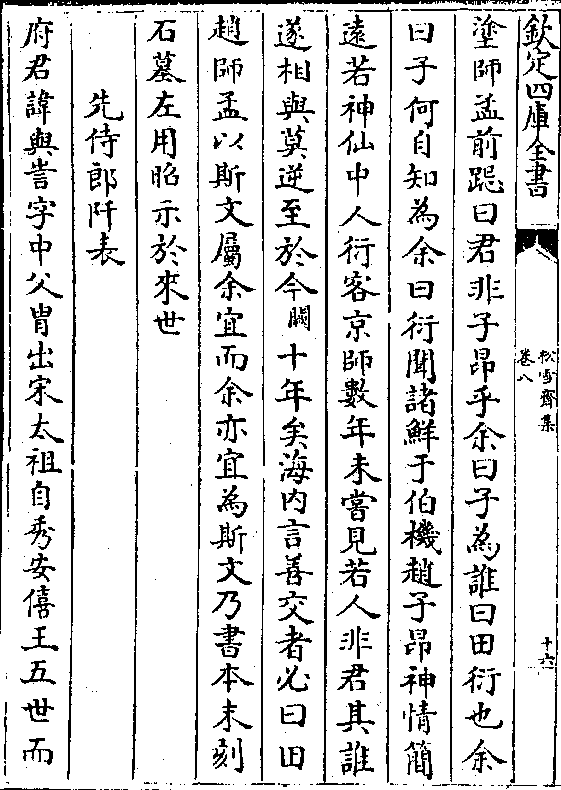 欽定四庫全書
松雪齋集
卷八
十六
塗師孟前跽曰君非子昂乎余曰子為誰曰田衍也余
曰子何自知為余曰衍聞諸鮮于伯機趙子昂神情簡
遠若神仙中人衍客京師數年未嘗見若人非君其誰
遂相與莫逆至於今闕十年矣海内言善交者必曰田
趙師孟以斯文屬余宜而余亦宜為斯文乃書本末刻
石墓左用昭示於來世
先侍郎阡表
府君諱與訔字中父胄出宋太祖自秀安僖王五世而